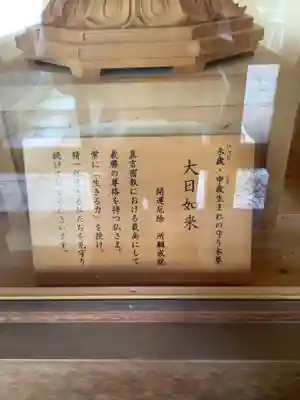 ひつじ さる
未歳・申歳生まれの守り本尊
大日如来
開運厄除 所願成就
真言密教における最高にして
最勝の尊格を持つ仏さま。
常に「生きる力」を授け、
精一杯生きる私たちを見守り
続けてくださいます。